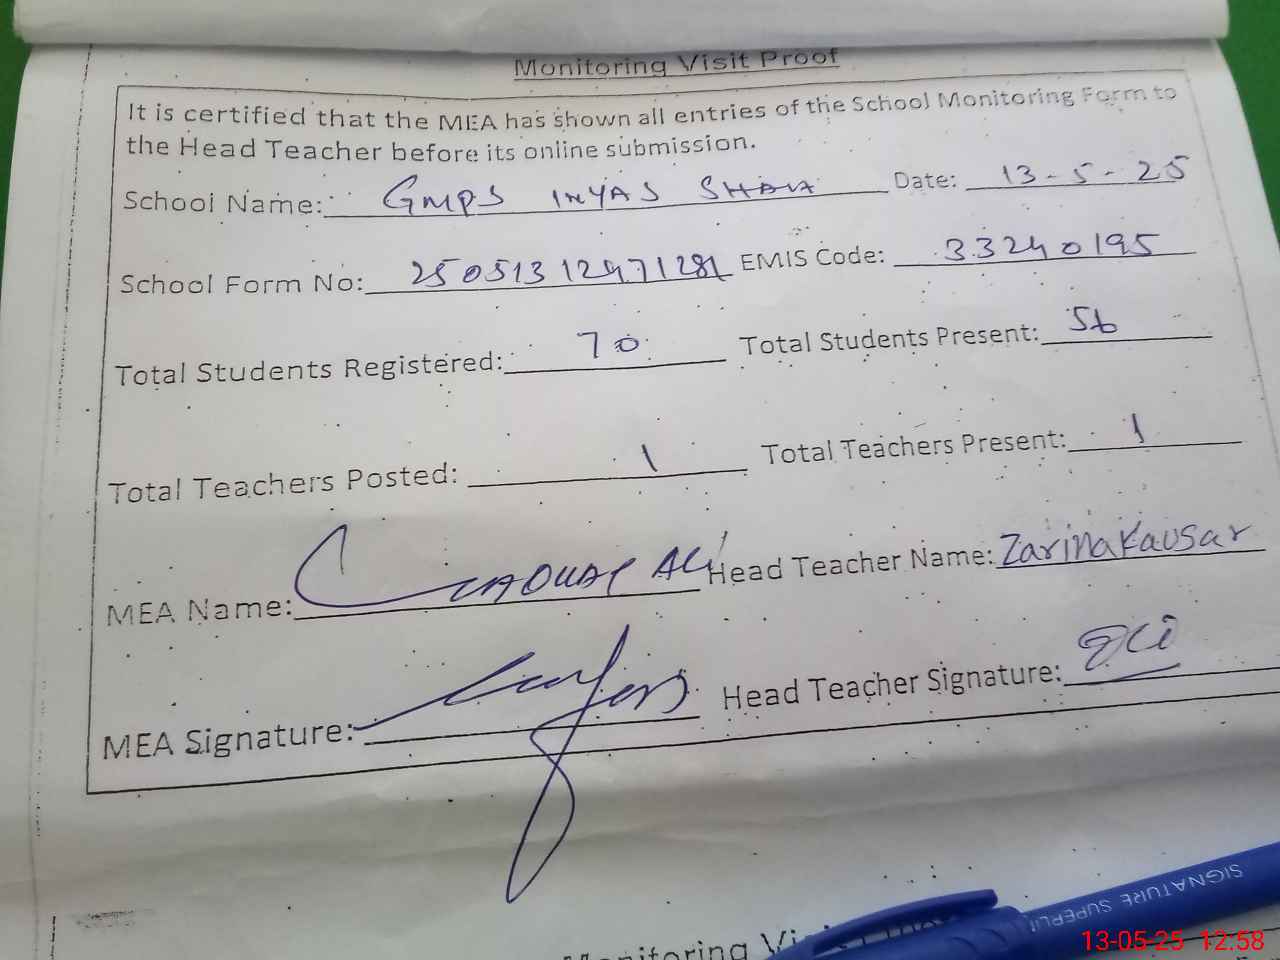 Monitoring Visit Proof
It is certified that the MEA has shown all entries of the School Monitoring Form to
the Head Teacher before its online submission.
School Name: GMPS INYAS Date: 13-5-25
School Form No: EMIS Code: 33240195
Total Students Registered: 70 Total Students Present: 56
Total Teachers Posted: 1 Total Teachers Present: 1
MEA Name: ALI Head Teacher Name: Zarina Kausar
MEA Signature: Head Teacher Signature:
SIGNATURE
Monitoring
13-05-25 12:58